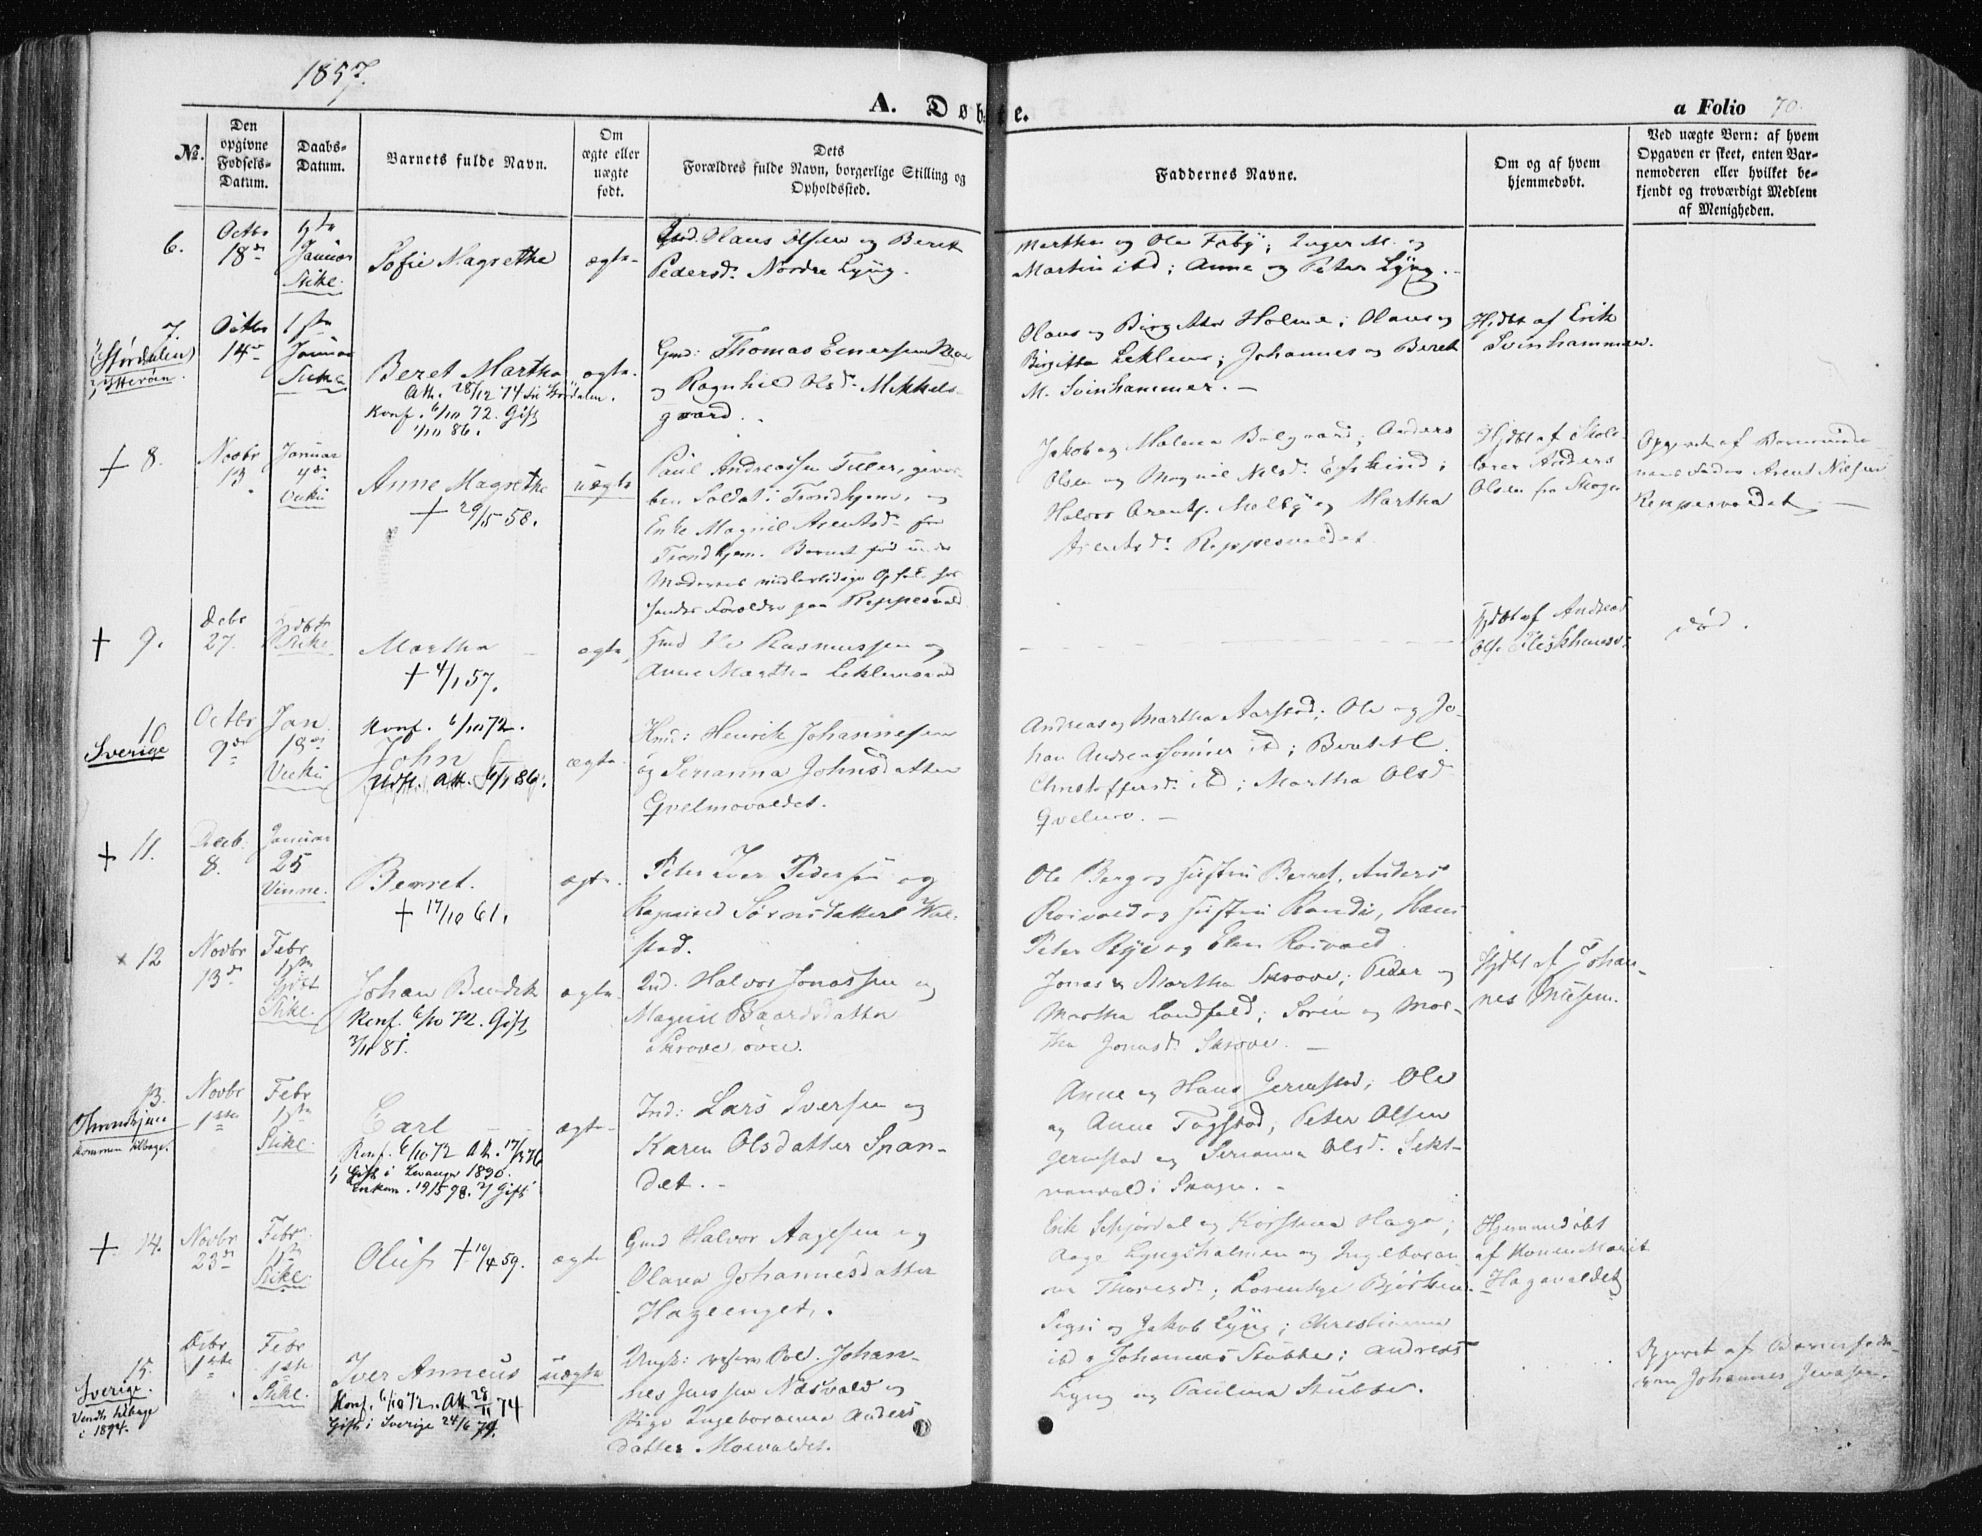 1857.
A. Døbte.
a Folio 70.
№.
Den
opgivne
Fødsels-
Datum.
Daabs-
Datum.
Barnets fulde Navn.
Om
ægte eller
uægte
født.
Dets
Forældres fulde Navn, borgerlige Stilling og
Opholdssted.
Faddernes Navne.
Om og af hvem
hjemmedøbt.
Ved uægte Børn: af hvem
Opgaven er skeet, enten Bar-
nemoderen eller hvilket be-
kjendt og troværdigt Medlem
af Menigheden.
6.
Octbr
18de
1ste
Januar
Stikl.
Sofie Magrethe
ægte
Hans Olsen og Beret
Pedersd. Nordre Lyng.
Martha og Ole Faby; Inger M. og
Martin ibd; Anna og Peter Lyng.
7.
Størdalen
Ytterøen
Octbr
14de
1ste
Januar
Stikl.
Beret Martha
Att. 28/12 74 til Stördalen.
Konf. 6/10 72. Gift
1/11 86.
ægte.
Gmd: Thomas Einersen
og Ragnhild Olsd. Mikkels-
gaard.
Olaus og Birgitta Holme; Olaus og
Birgitta Leklem; Johannes og Beret
M. Svinhammer.
Hjdbt af Erik
Svinhammer.
+ 8.
Novbr
13
Januar
4de
Vuku
Anne Magrethe
+ 29/5 58.
uægte
Paul Andreassen Tiller,
ben Soldat i Trondhjem, og
Enke Magnil Arentsd. fra
Trondhjem. Barnet fød under
Moderens midlertidige Ophold hos
sendes Forældre paa Reppesvald
Jakob og Malena Balgaard; Anders
Olsen og Magnil Nilsd. Eskind;
Halvor Arents. Melby og Martha
Arentsd. Reppesvaldet.
Hjdbt af Skole-
lærer Anders
Olsen fra Skogn
Opgivet af Barnemode-
rens Fader Arent Nielsen
Reppesvaldet
+ 9.
Debr
27.
Hjdbt
Stikl.
Martha
+ 4/1 57.
ægte
Hmd Ole Rasmussen og
Anne Martha Leklemsvald
Hjdbt af Andreas
død.
10
Sverige
Octbr
9de
Jan
18de
Vuku
Konf. 6/10 72.
John
Udfl. Att. 6/1 86.
ægte
Hmd: Henrik Johannesen
og Serianna Johnsdatter
Qvelmovaldet.
Andreas og Martha Aarstad; Ole og Jo-
han Andreassønner ibd; Beret M.
Christoffersd. ibd; Martha Olsd
Qvelmo.
+ 11.
Deeb.
8.
Januar
25
Vinne.
Berret.
+ 17/10 61.
ægte.
Peter Iver Pedersen og
Ragnild Sørensdatter
stad.
Ole Berg og Hustru Berret, Anders
Roivold og Hustru Randi, Hans
Peter Rye og Elen Roivold
× 12
Novbr
13de
Febr
1ste
Hjdbt
Stikl.
Johan Bendik
Konf. 6/10 72. Gift
3/11 81.
ægte
Ind. Halvor Jonassen og
Magnil Baardsdatter
Skrove øvre.
Jonas & Martha Skrove; Peder og
Martha Landfald; Søren og Mar-
tha Jonasd. Skrove.
Hjdbt af Johan-
nes Nielsen.
13.
Throndhjem
kommen tilbage.
Novbr
1ste
Febr
1ste
Stikl.
Carl
Konf. 6/10 72 Att. 17/1 76
1) Gift i Levanger 1890.
Enkem. 19/5 98. 2) Gift
ægte
Ind: Lars Iversen og
Karen Olsdatter Span-
det.
Anne og Hans Jermstad; Ole
og Anne Togstad; Peter Olsen
Jermstad og Serianna Olsd.
i Skogn.
+ 14.
Novbr
23de
Febr.
1ste
Stikl.
Oluf + 10/4 59.
ægte
Gmd Halvor Aagesen og
Olava Johannesdatter
Hageenget.
Erik Schjørdal og Kirstina Hage;
Aage Lyngsholmen og Ingeboran-
na Thoresd; Lorentse Bjørken
Hjemmedøbt
af Konen Marit
Hagavaldet
15.
Sverige.
Vendte tilbage
i 1894.
Debr
1ste
Febr
1ste
Stikl.
Iver Anneus
Konf. 6/10 72. Att. 28/11 74
Gift i Sverige 24/6 79.
uægte
Ungk: Johan-
nes Jenssen Næsvald og
Pige Ingeboranna Anders
datter Moevaldet.
Sigri og Jakob Lyng; Christianna
ibd; Johannes Stubbe; Andreas
Lyng og Paulina Stubbe.
Opgivet af Barnefade-
ren Johannes Jenssen.